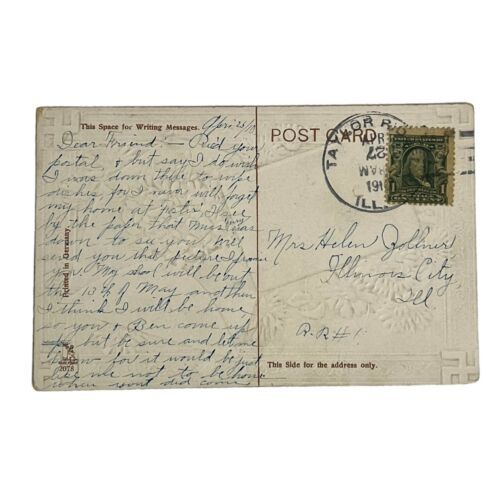 This Space for Writing Messages.
POST CARD
April 25/
Dear Friend: - Rec'd your
postal & but say I do wish
I was down there to wipe
dishes for I never will forget
my home at I see
by the paper that Miss was
down to see you. Will
send you that picture I promised
you. My school will be out
the 13th of May and then
I think I will be home
so you & Ben come up
but be sure and let me
know for it would be just
like me not to be home
when did come
Printed in Germany.
2078
TAYLOR RIDGE
APR
27
AM
191
ILL.
1
Mrs Helen Zollner
Illinois City,
Ill
R.R #1.
This Side for the address only.